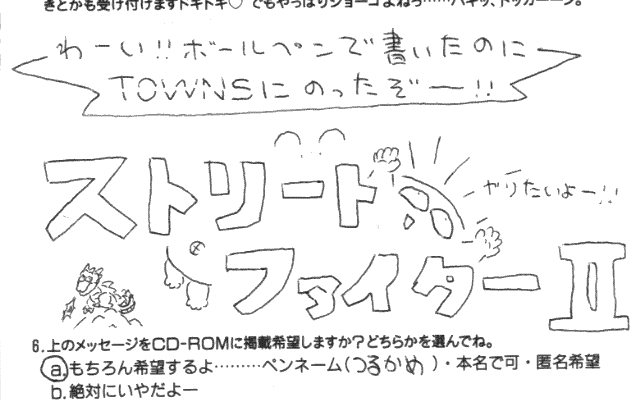 きとかも受け付けますドキドキ♡ でもやっぱりジョーゴよねっ……バキッ、ドッカーーン。
わーい!!ボールペンで書いたのに
TOWNSにのったぞー!!
ストリート
やりたいよー!!
ファイターII
6.上のメッセージをCD-ROMに掲載希望しますか?どちらかを選んでね。
a.もちろん希望するよ………ペンネーム(つるかめ)・本名で可・匿名希望
b.絶対にいやだよー